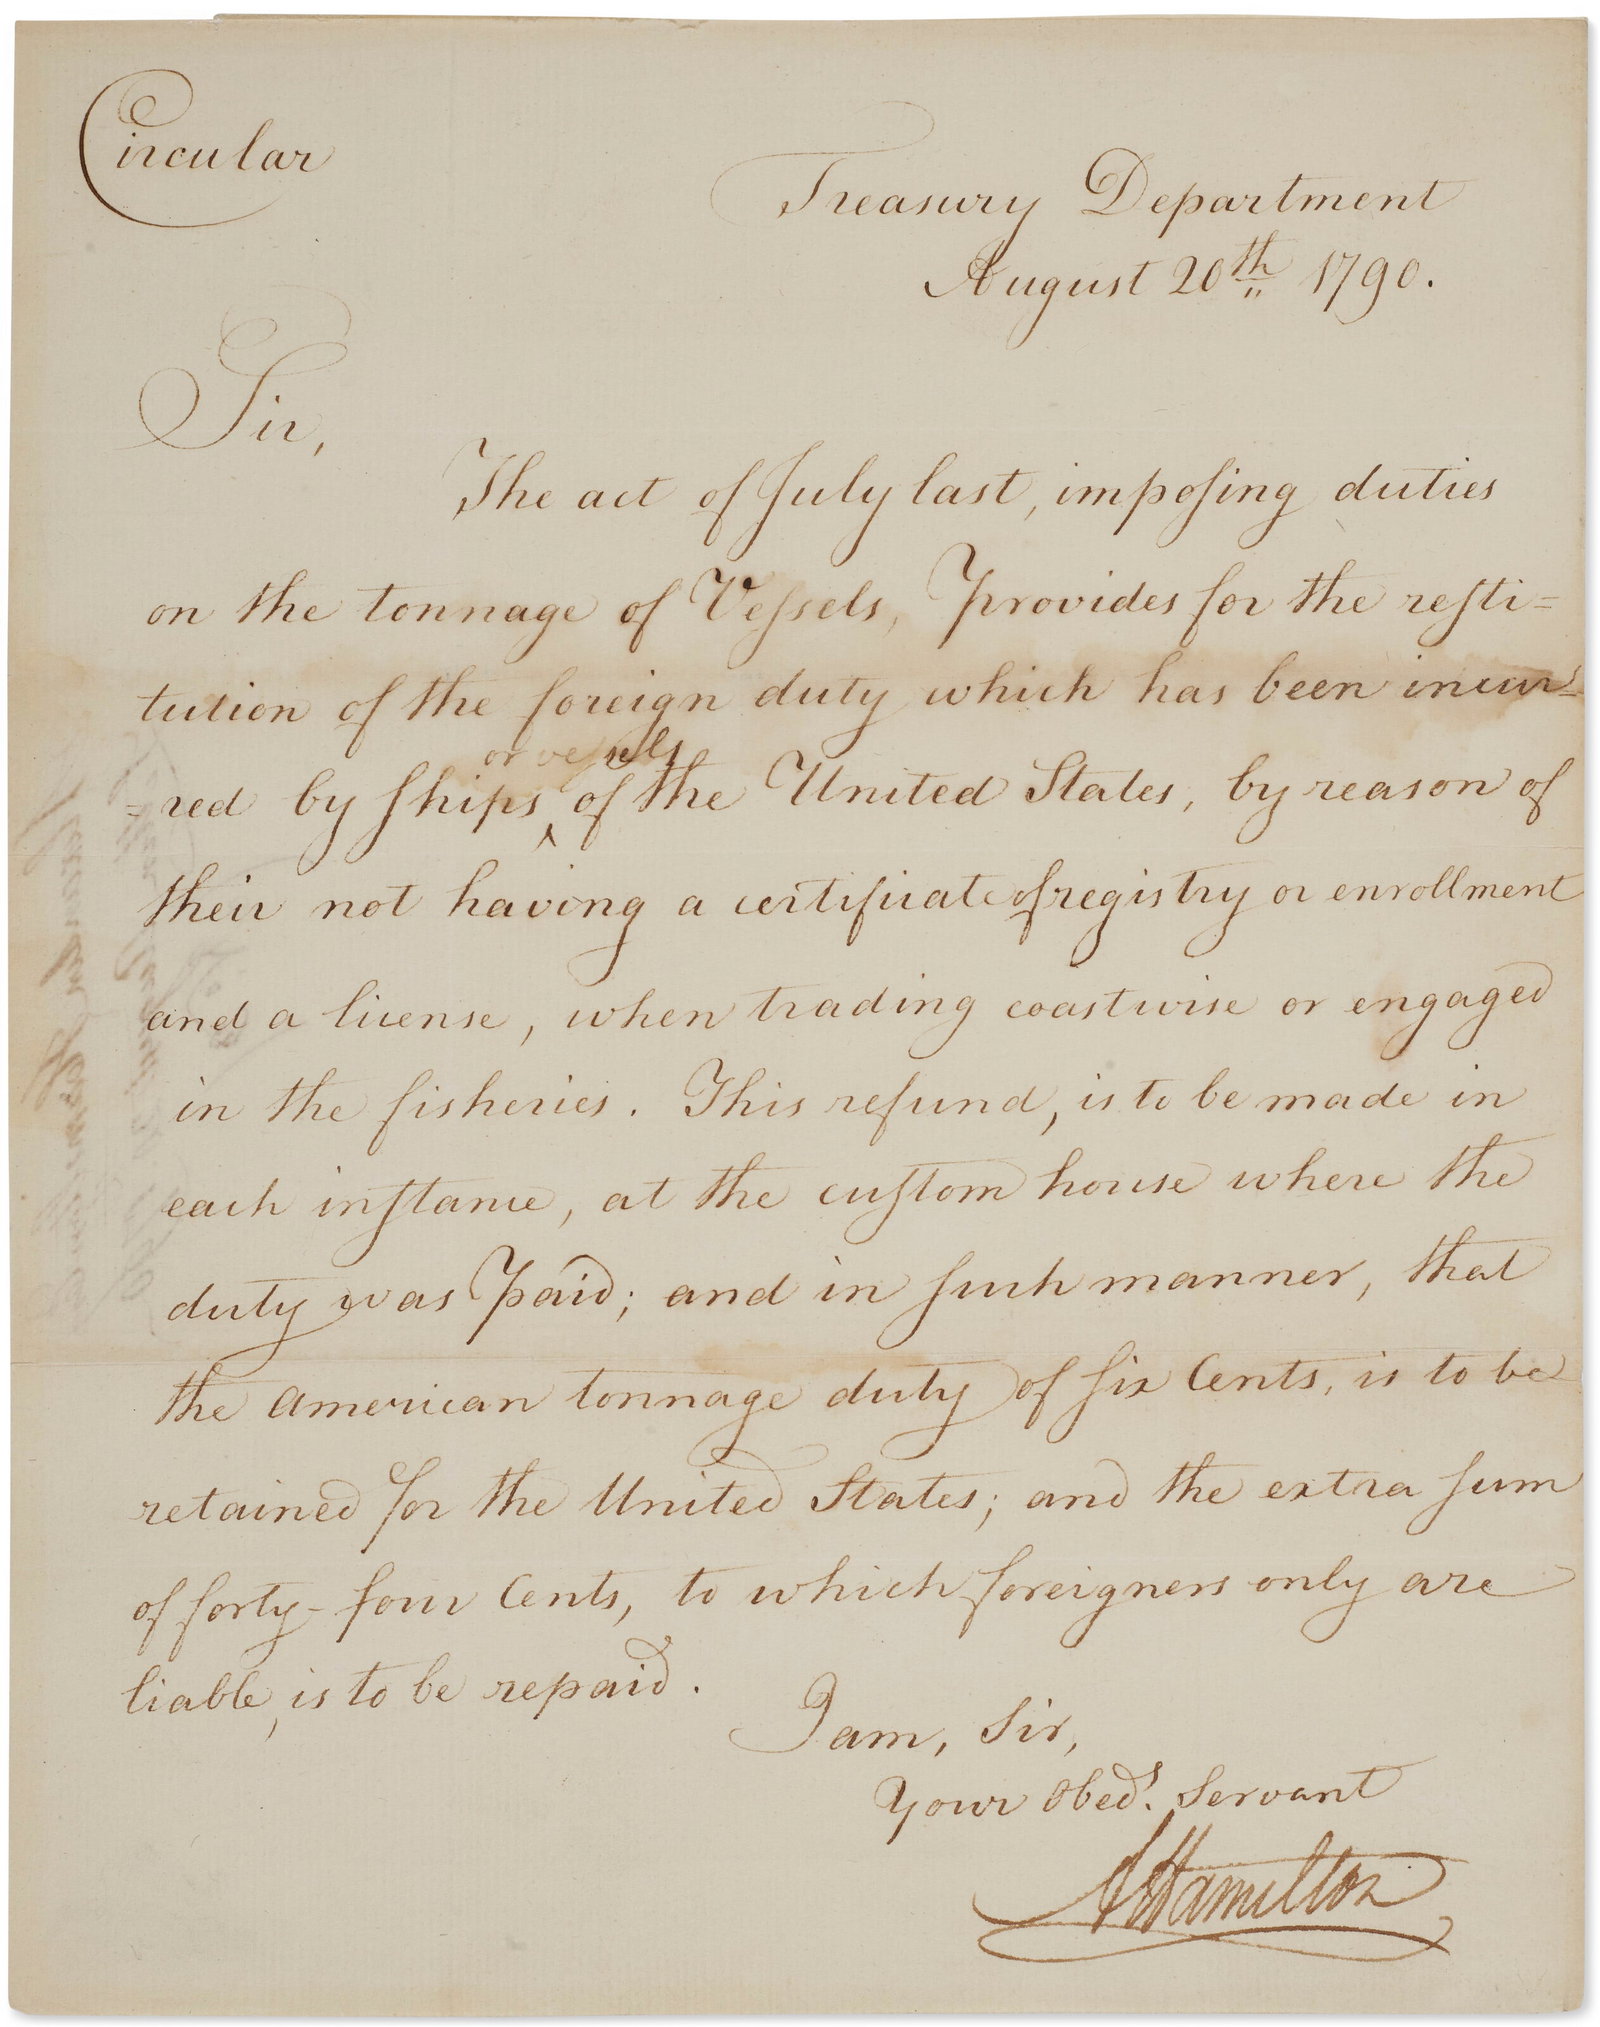 Circular
Treasury Department
August 20th 1790.
Sir,
The act of July last, imposing duties
on the tonnage of Vessels, provides for the resti=
tution of the foreign duty which has been incur=
or vessels
=red by ships ‸ of the United States, by reason of
their not having a certificate of registry or enrollment
and a license, when trading coastwise or engaged
in the fisheries. This refund, is to be made in
each instance, at the custom house where the
duty was paid; and in such manner, that
the American tonnage duty of six Cents, is to be
retained for the United States; and the extra sum
of forty-four Cents, to which foreigners only are
liable, is to be repaid.
I am, Sir,
Your Obedt. Servant
A Hamilton